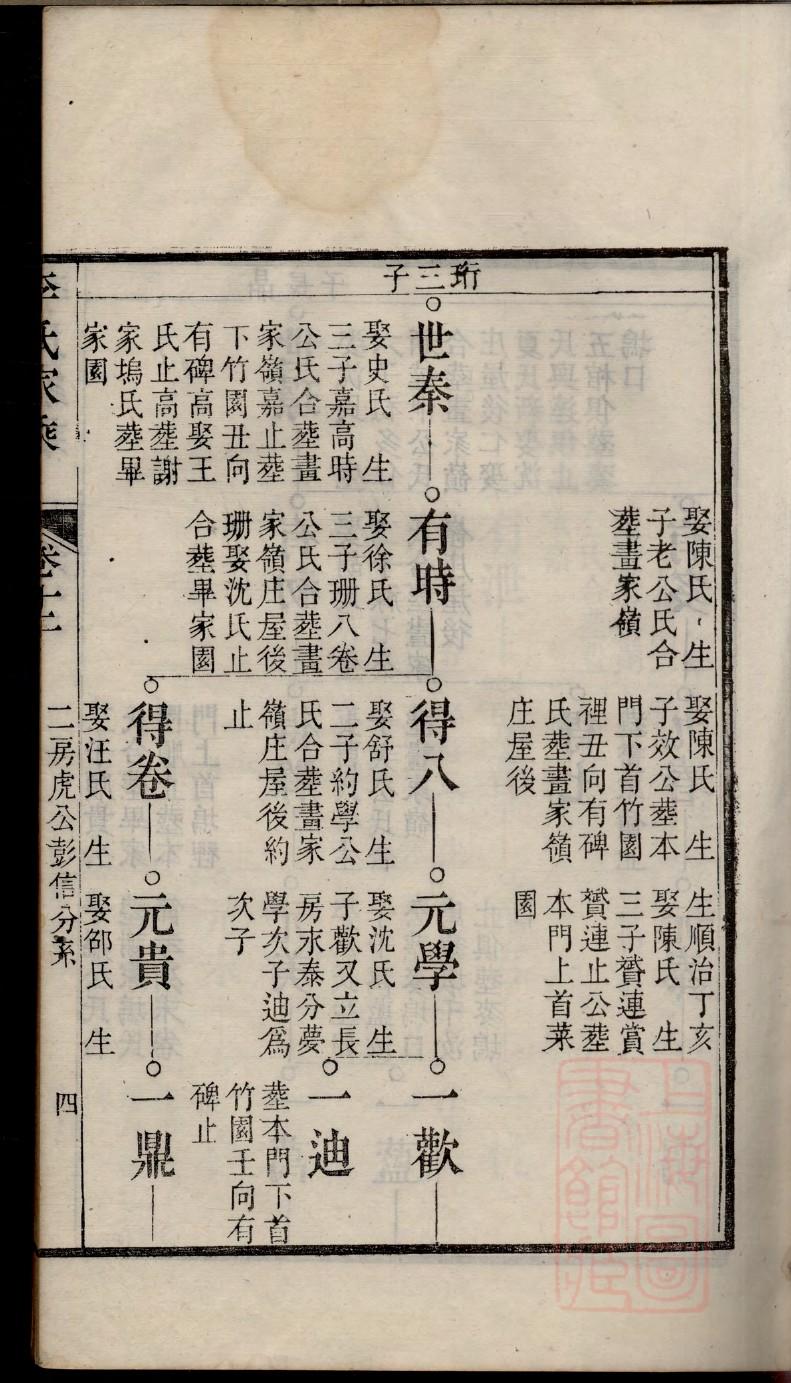 珩三子
世秦
娶史氏生
三子嘉高時
公氏合塟畫
家嶺嘉止塟
下竹園丑向
有碑高娶王
氏止高塟謝
家塢氏塟畢
家園
娶陳氏生
子老公氏合
塟畫家嶺
有時
娶徐氏生
三子珊八卷
公氏合塟畫
家嶺庄屋後
珊娶沈氏止
合塟畢家園
娶陳氏生
子效公塟本
門下首竹園
裡丑向有碑
氏塟畫家嶺
庄屋後
得八
娶舒氏生
二子約學公
氏合塟畫家
嶺庄屋後約
止
得卷
娶汪氏生
生順治丁亥
娶陳氏生
三子贇連賞
贇連止公塟
本門上首菜
園
元學
娶沈氏生
子歡又立長
房求泰分夢
學次子迪爲
次子
元貴
娶邵氏生
一歡
一迪
塟本門下首
竹園壬向有
碑止
一鼎
李氏家乘
卷十二
二房虎公彭信分系
四